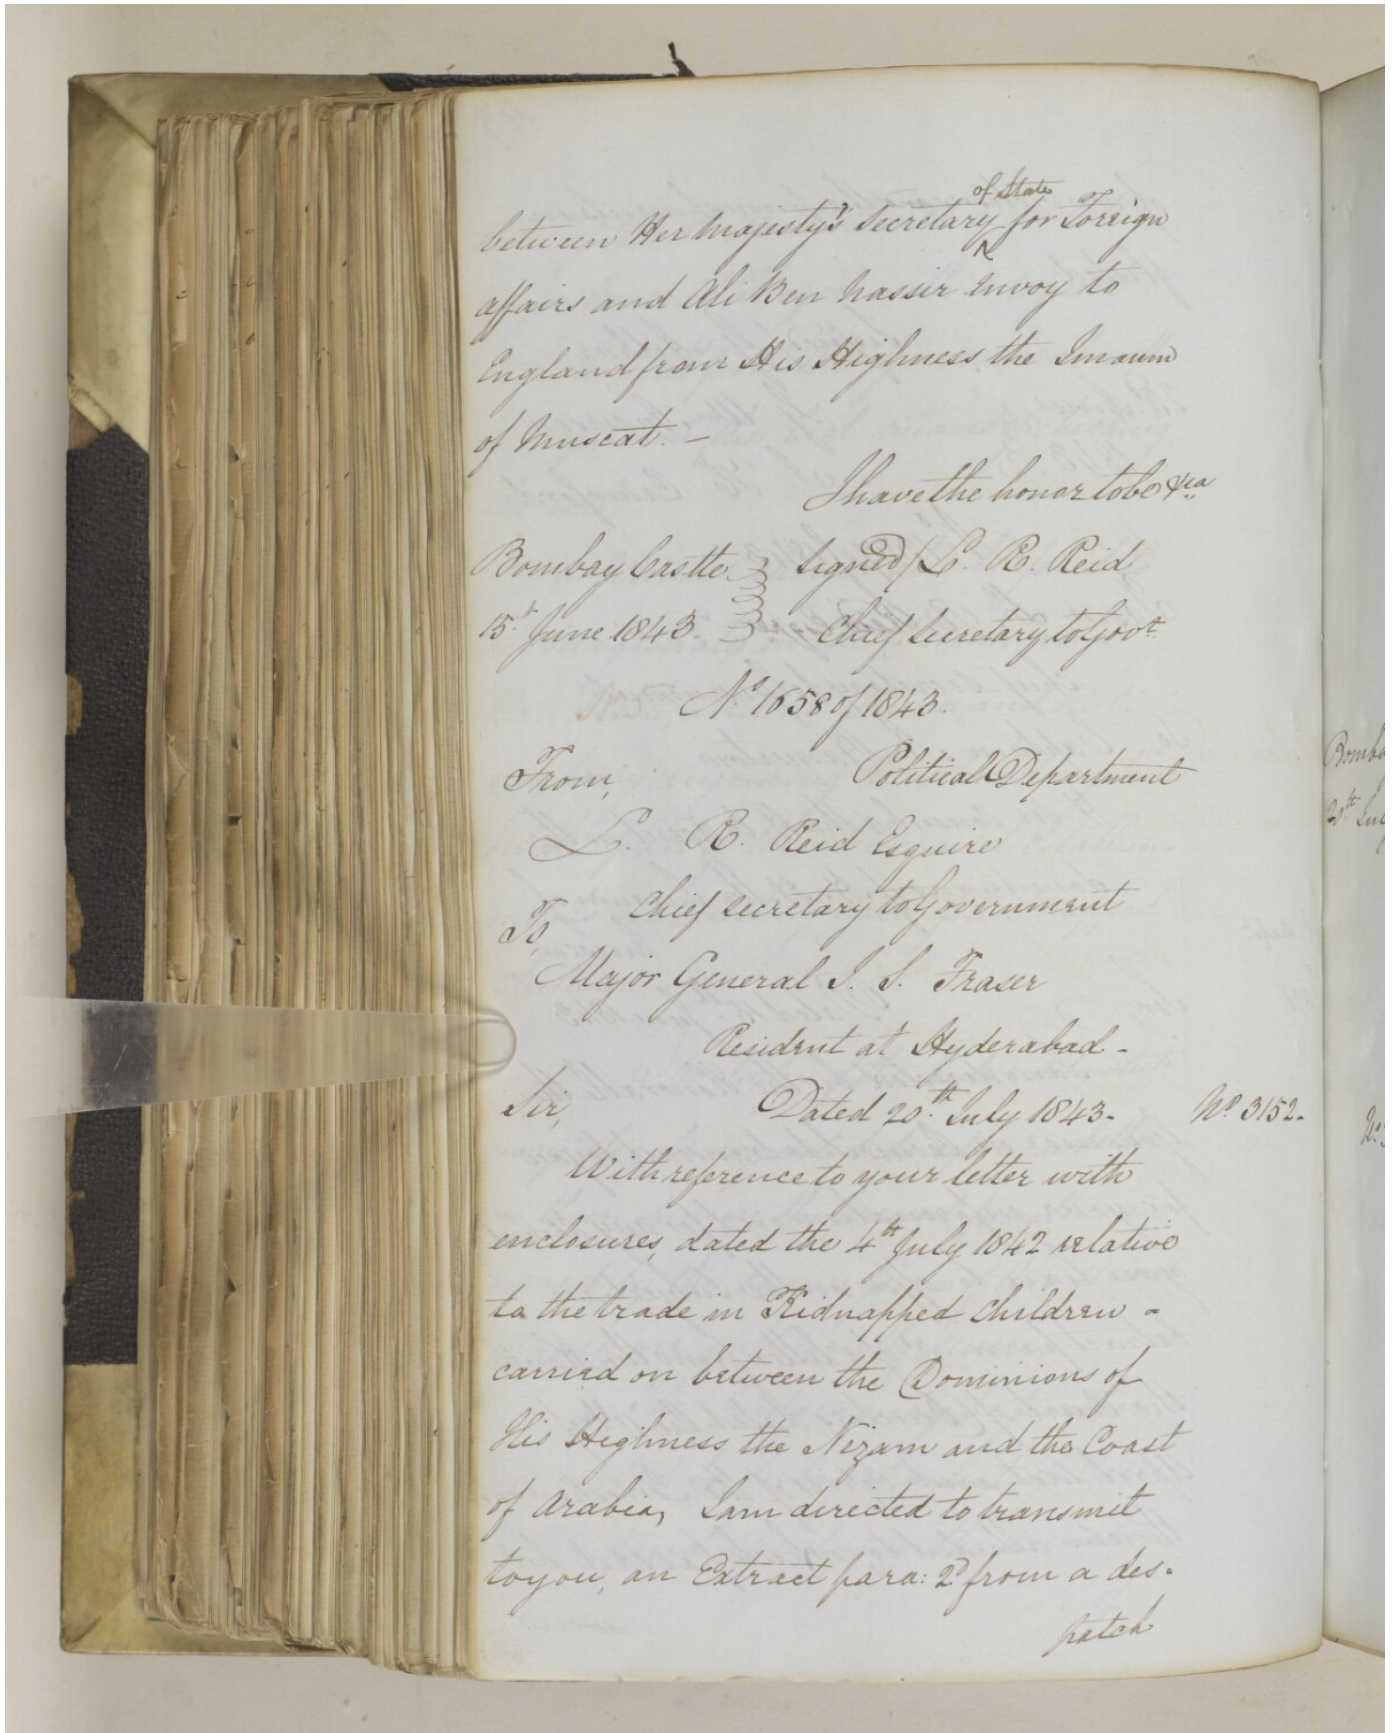 between Her Majesty's Secretary of State for Foreign
affairs and Ali Ben Nassir Envoy to
England from His Highness the Imaum
of Muscat. —
I have the honor to be &ca
Bombay Castle signed/ L. R. Reid
15th June 1843. Chief Secretary to Govt.
No. 1658 of 1843.
From, Political Department
L. R. Reid Esquire
Chief Secretary to Government
To,
Major General J. S. Fraser
Resident at Hyderabad -
Sir, Dated 20th July 1843 - No. 3152 -
With reference to your letter with
enclosures, dated the 4th July 1842 relative
to the trade in Kidnapped Children -
carried on between the Dominions of
His Highness the Nizam and the Coast
of Arabia, I am directed to transmit
to you, an Extract para: 2d from a des-
patch
Bomba
20th Jul
No